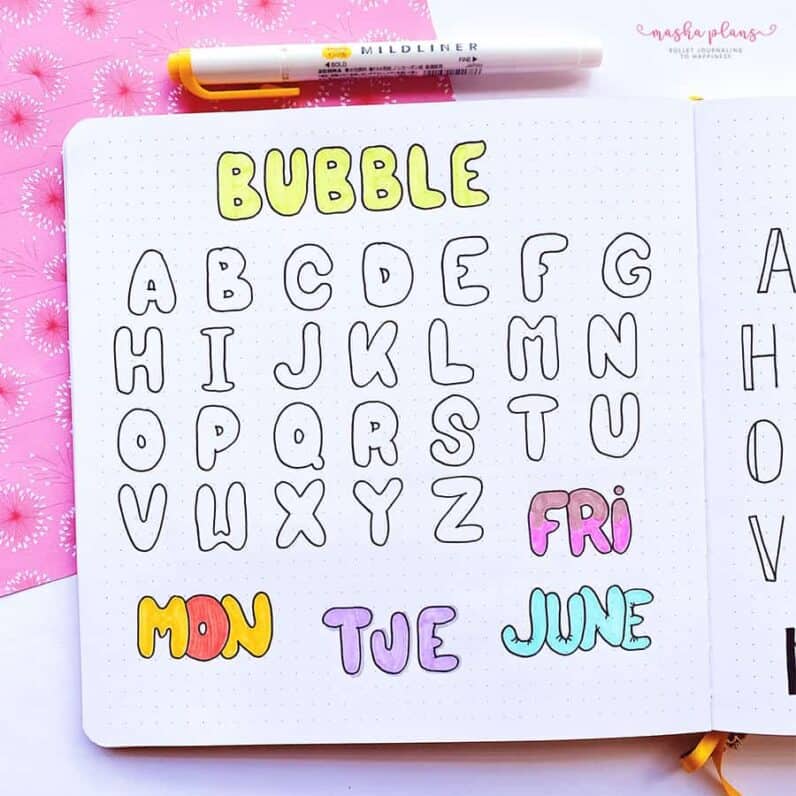 masha plans
BULLET JOURNALING
TO HAPPINESS
MILDLINER
BOLD
ZEBRA
FINE
BUBBLE
A B C D E F G
H I J K L M N
O P Q R S T U
V W X Y Z
FRi
MON TUE JUNE
A
H
O
V